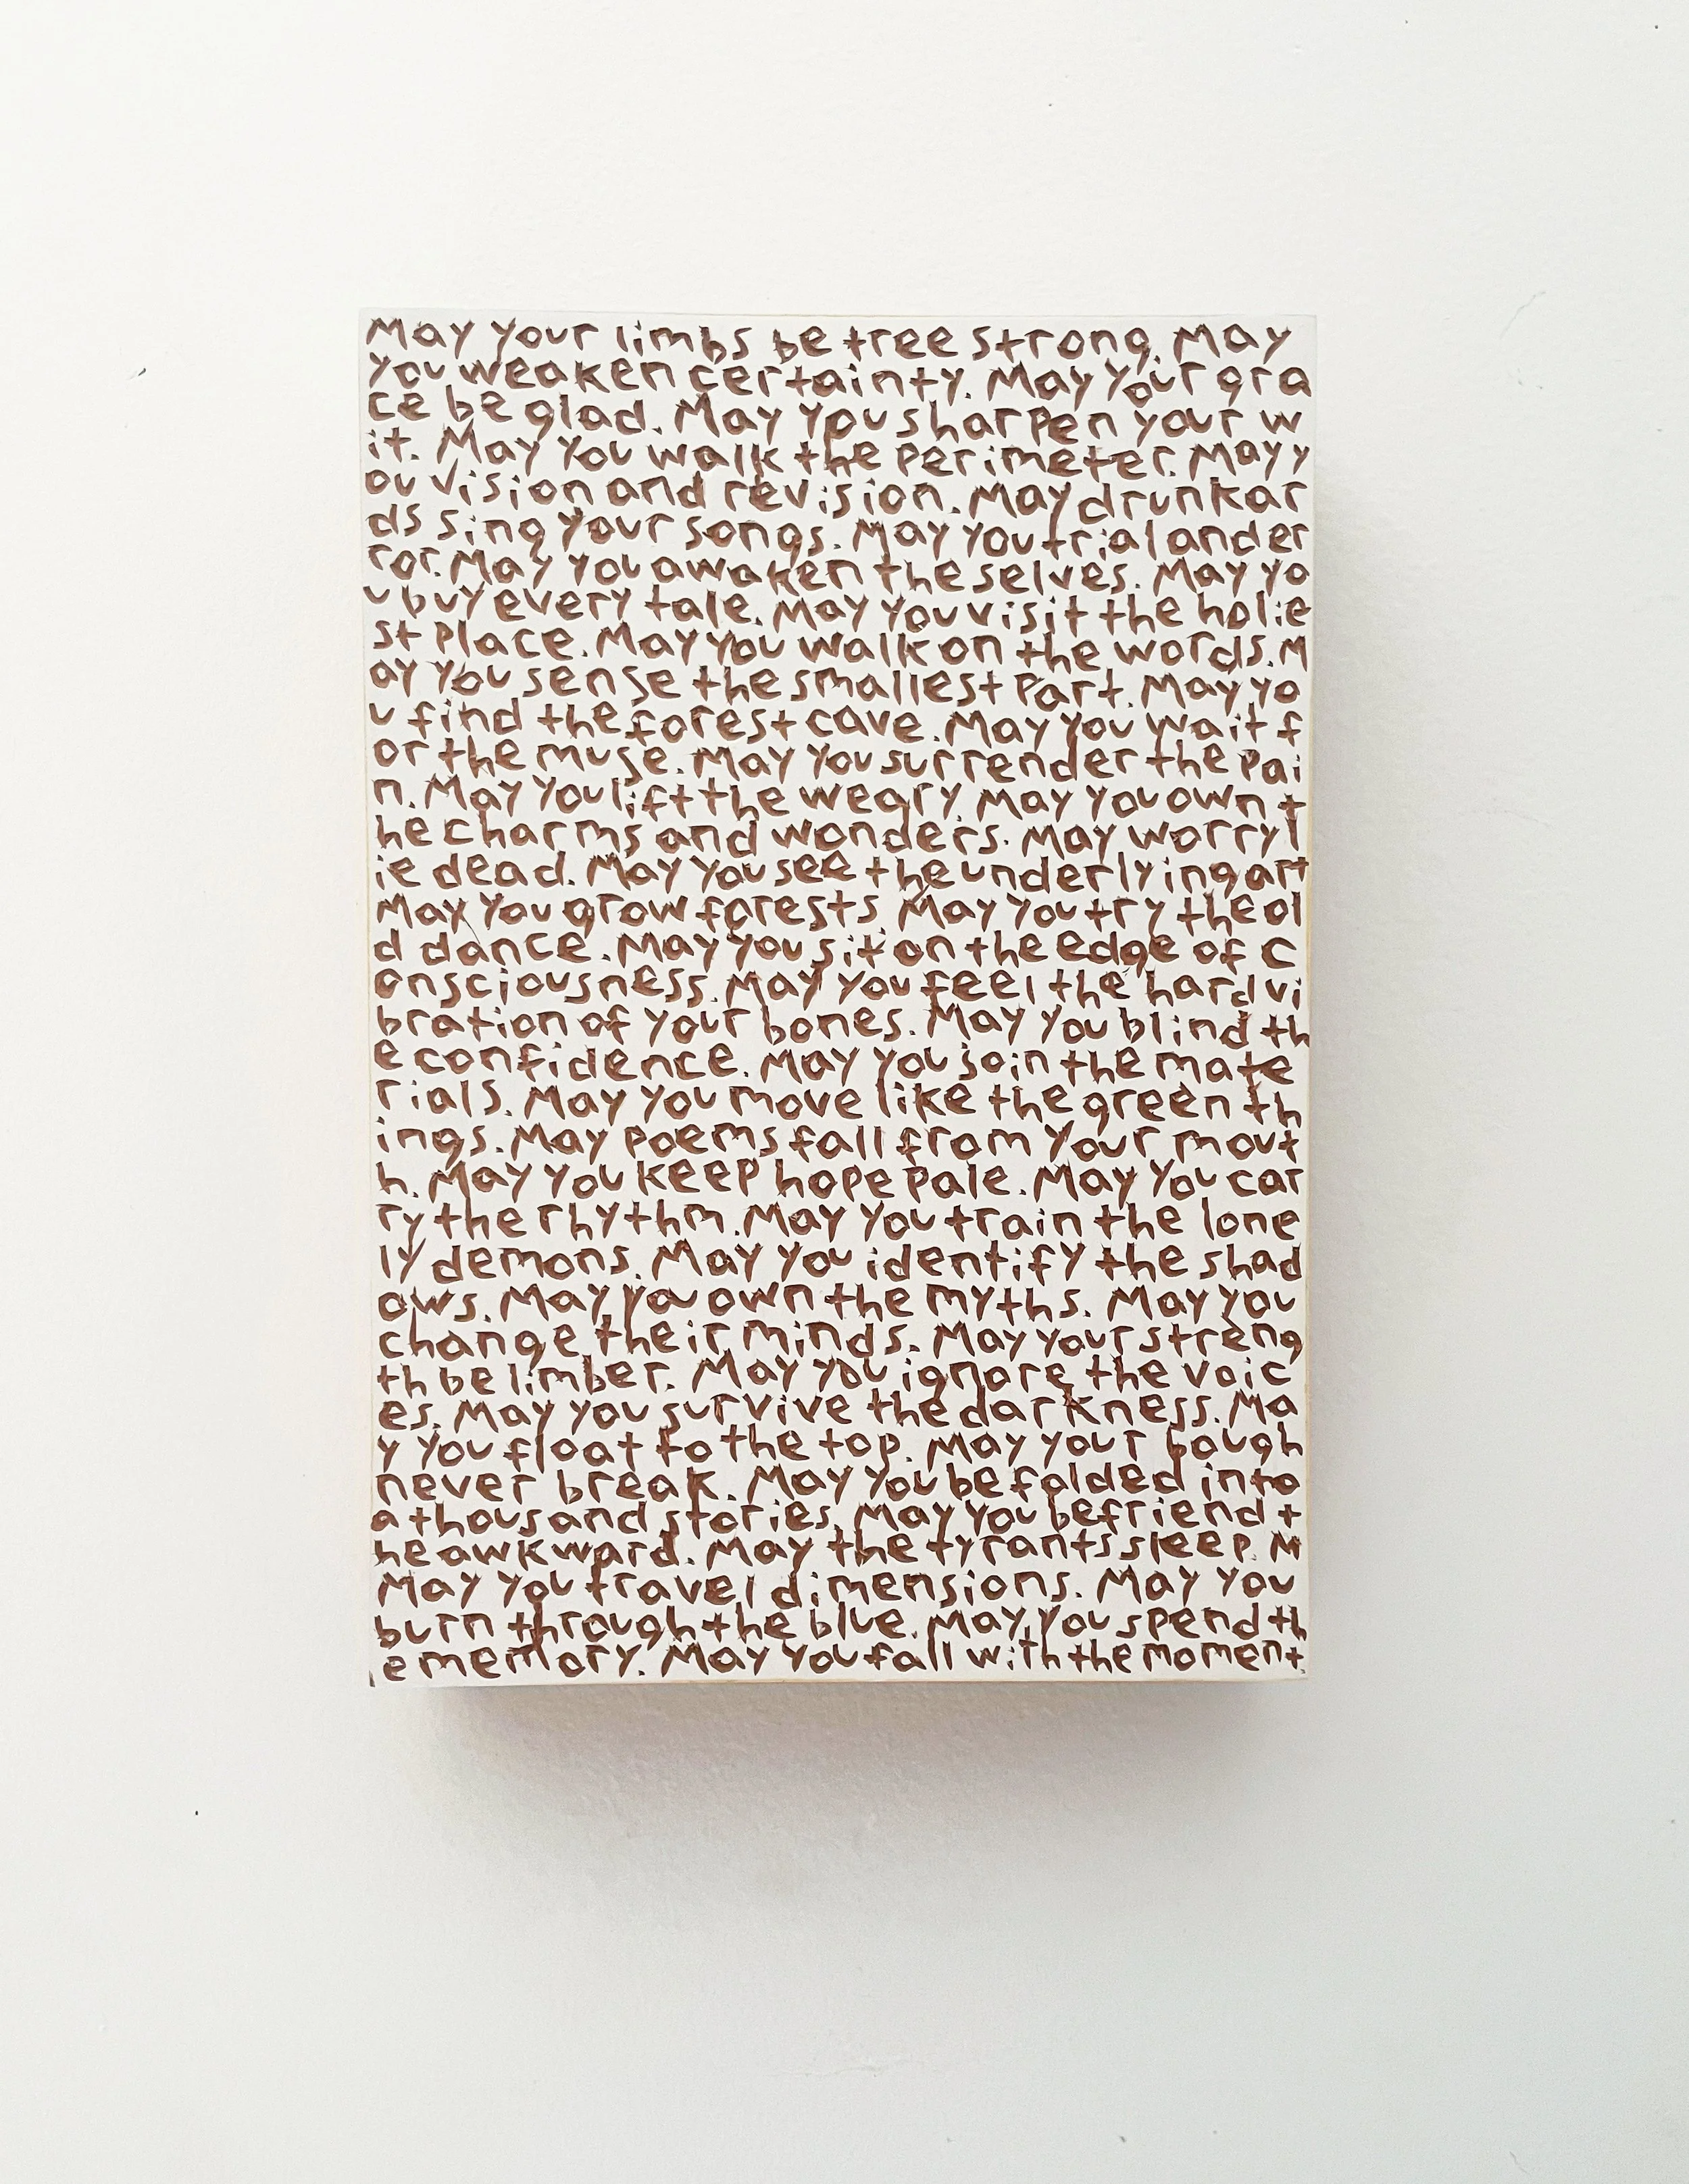 May your limbs be tree strong. May
you weaken certainty. May your gra
ce be glad. May you sharpen your w
it. May you walk the perimeter. May y
ou vision and revision. May drunkar
ds sing your songs. May you trial and er
ror. May you awaken the selves. May yo
u buy every tale. May you visit the holie
st place. May you walk on the words. M
ay you sense the smallest part. May yo
u find the forest cave. May you wait f
or the muse. May you surrender the pai
n. May you lift the weary. May you own t
he charms and wonders. May worry l
ie dead. May you see the underlying art
May you grow forests May you try the ol
d dance. May you sit on the edge of c
onsciousness. May you feel the hard vi
bration of your bones. May you blind th
e confidence. May you join the mate
rials. May you move like the green th
ings. May poems fall from your mout
h. May you keep hope pale. May you car
ry the rhythm. May you train the lone
ly demons. May you identify the shad
ows. May you own the myths. May you
change their minds. May your streng
th be limber. May you ignore the voic
es. May you survive the darkness. Ma
y you float to the top. May your bough
never break. May you be folded into
a thousand stories. May you befriend t
he awkward. May the tyrants sleep. M
May you travel dimensions. May you
burn through the blue. May you spend th
e memory. May you fall with the moment.